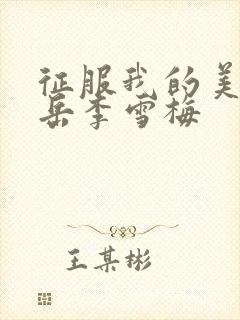 征服我的美
岳李雪梅
王某彬